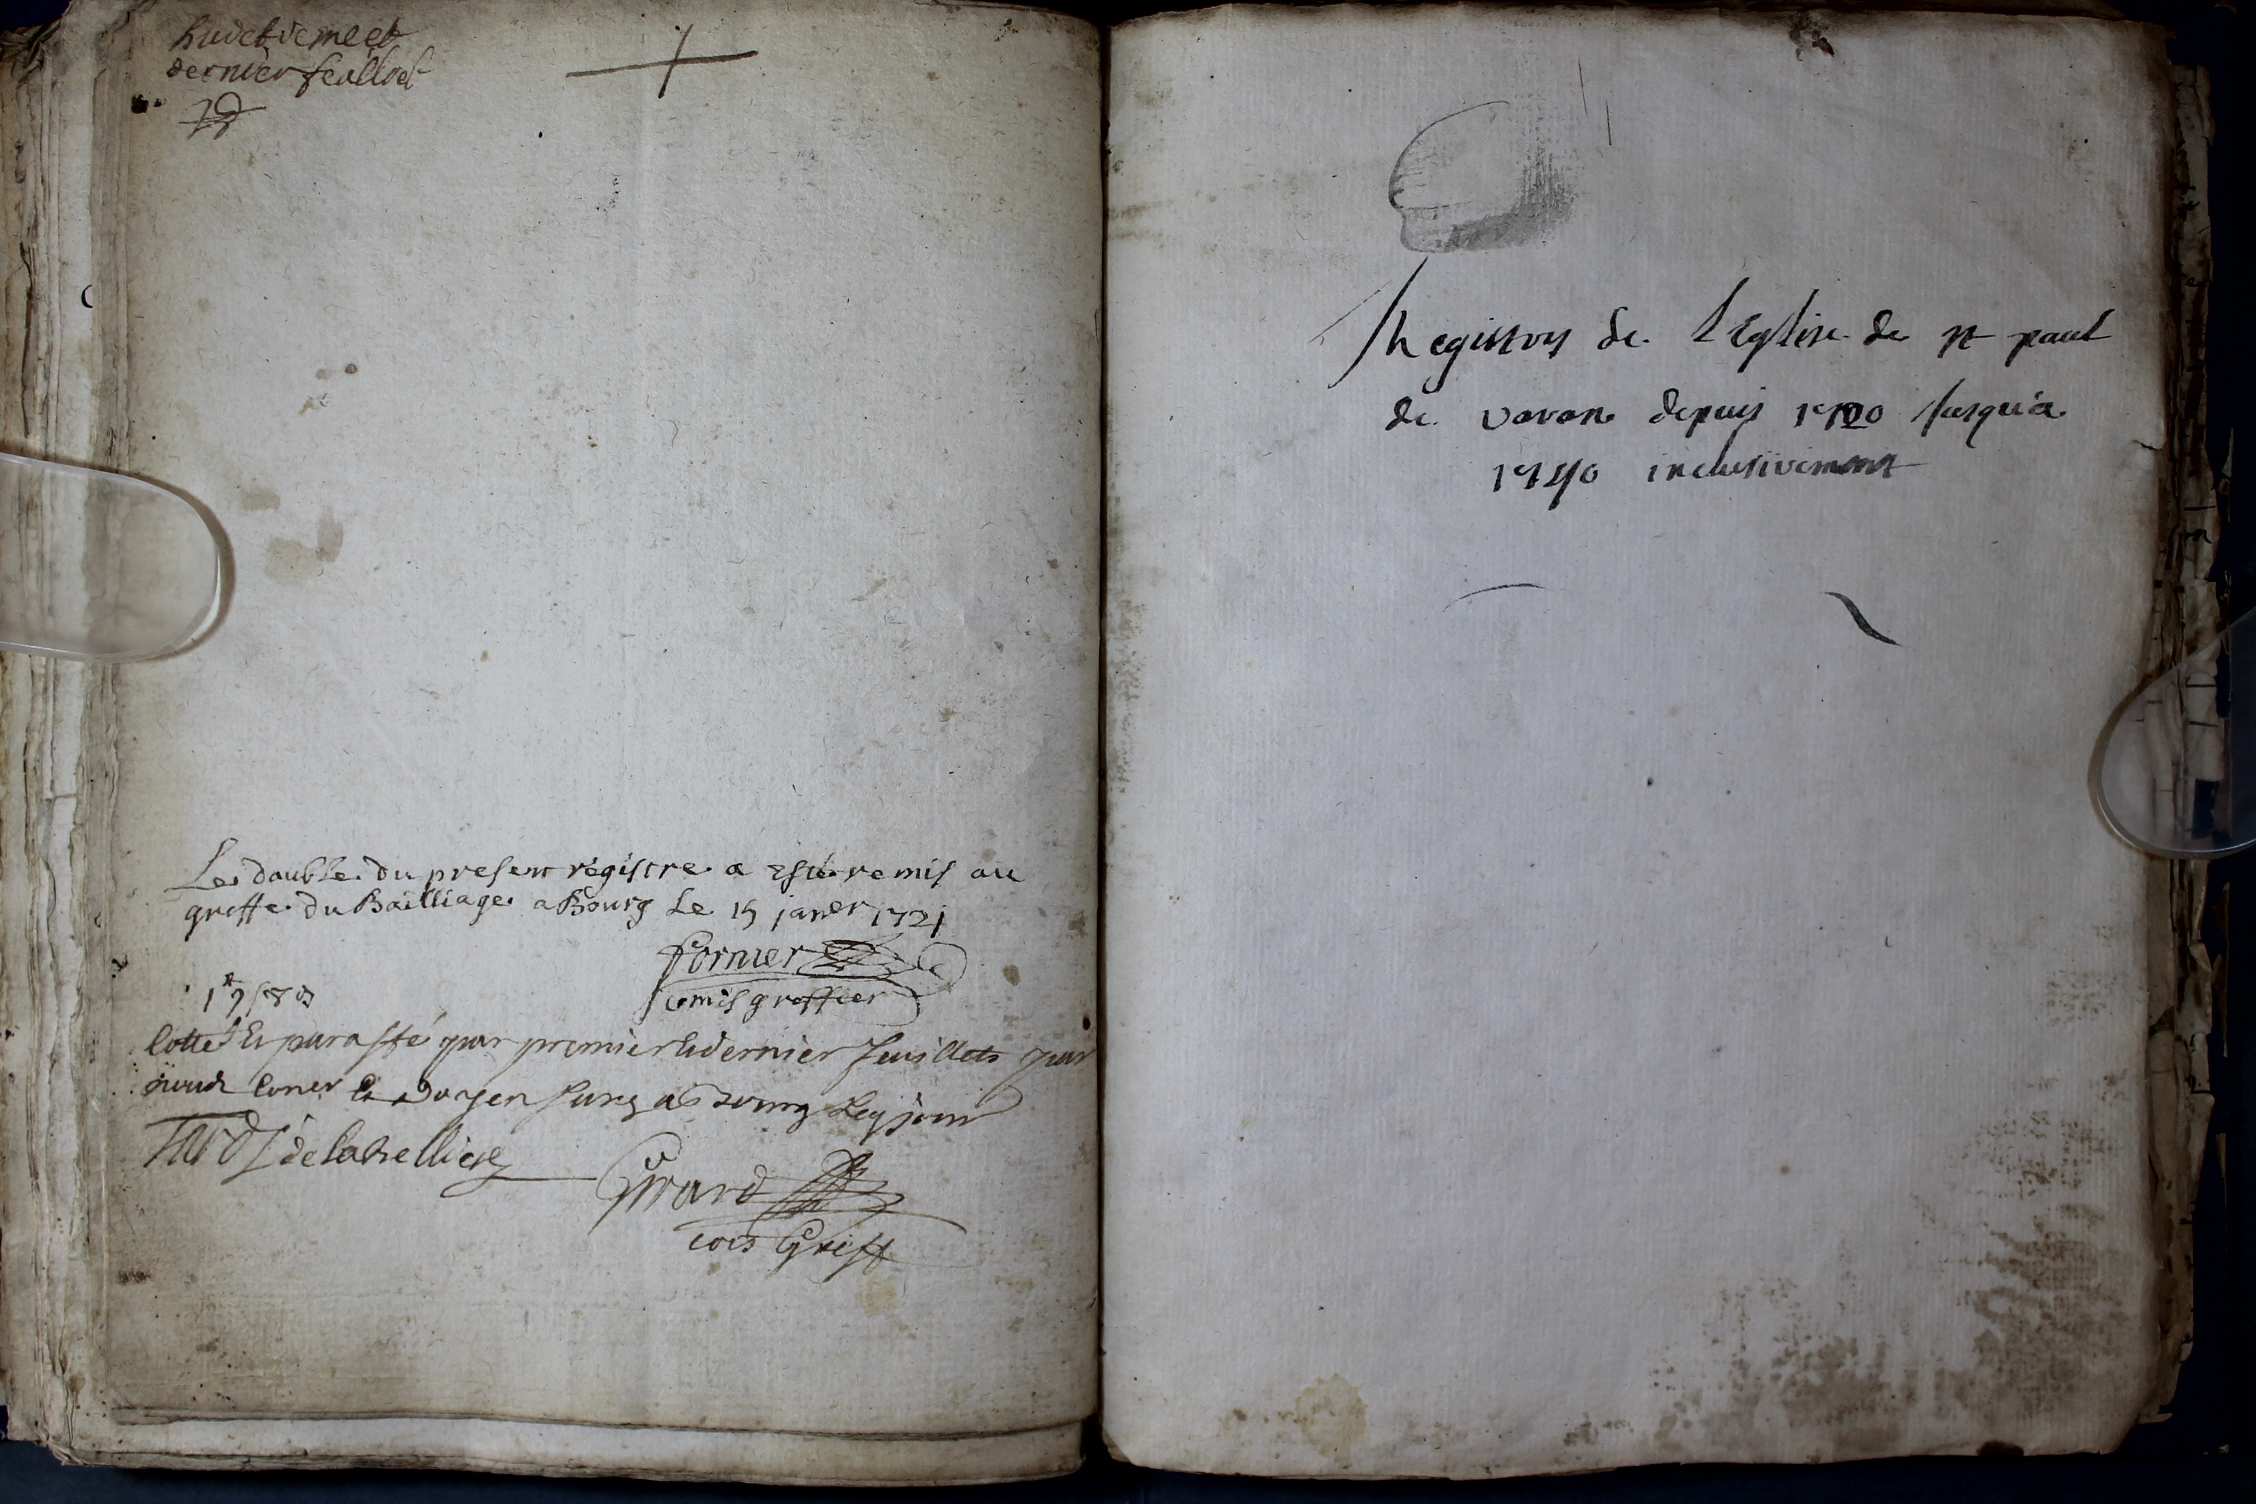 huictieme et
dernier feullet
Le double du present registre a esté remis au
greffe du Bailliage a Bourg Le 15 janer 1721
fornier
comis greffier
Cotté Et paraffé par premier & dernier feuillets par
Coner Doyen jour
Girard
cois Greff
Registres de L'Eglise de st paul
de varax depuis 1720 Jusqu'a
1740 inclusivement